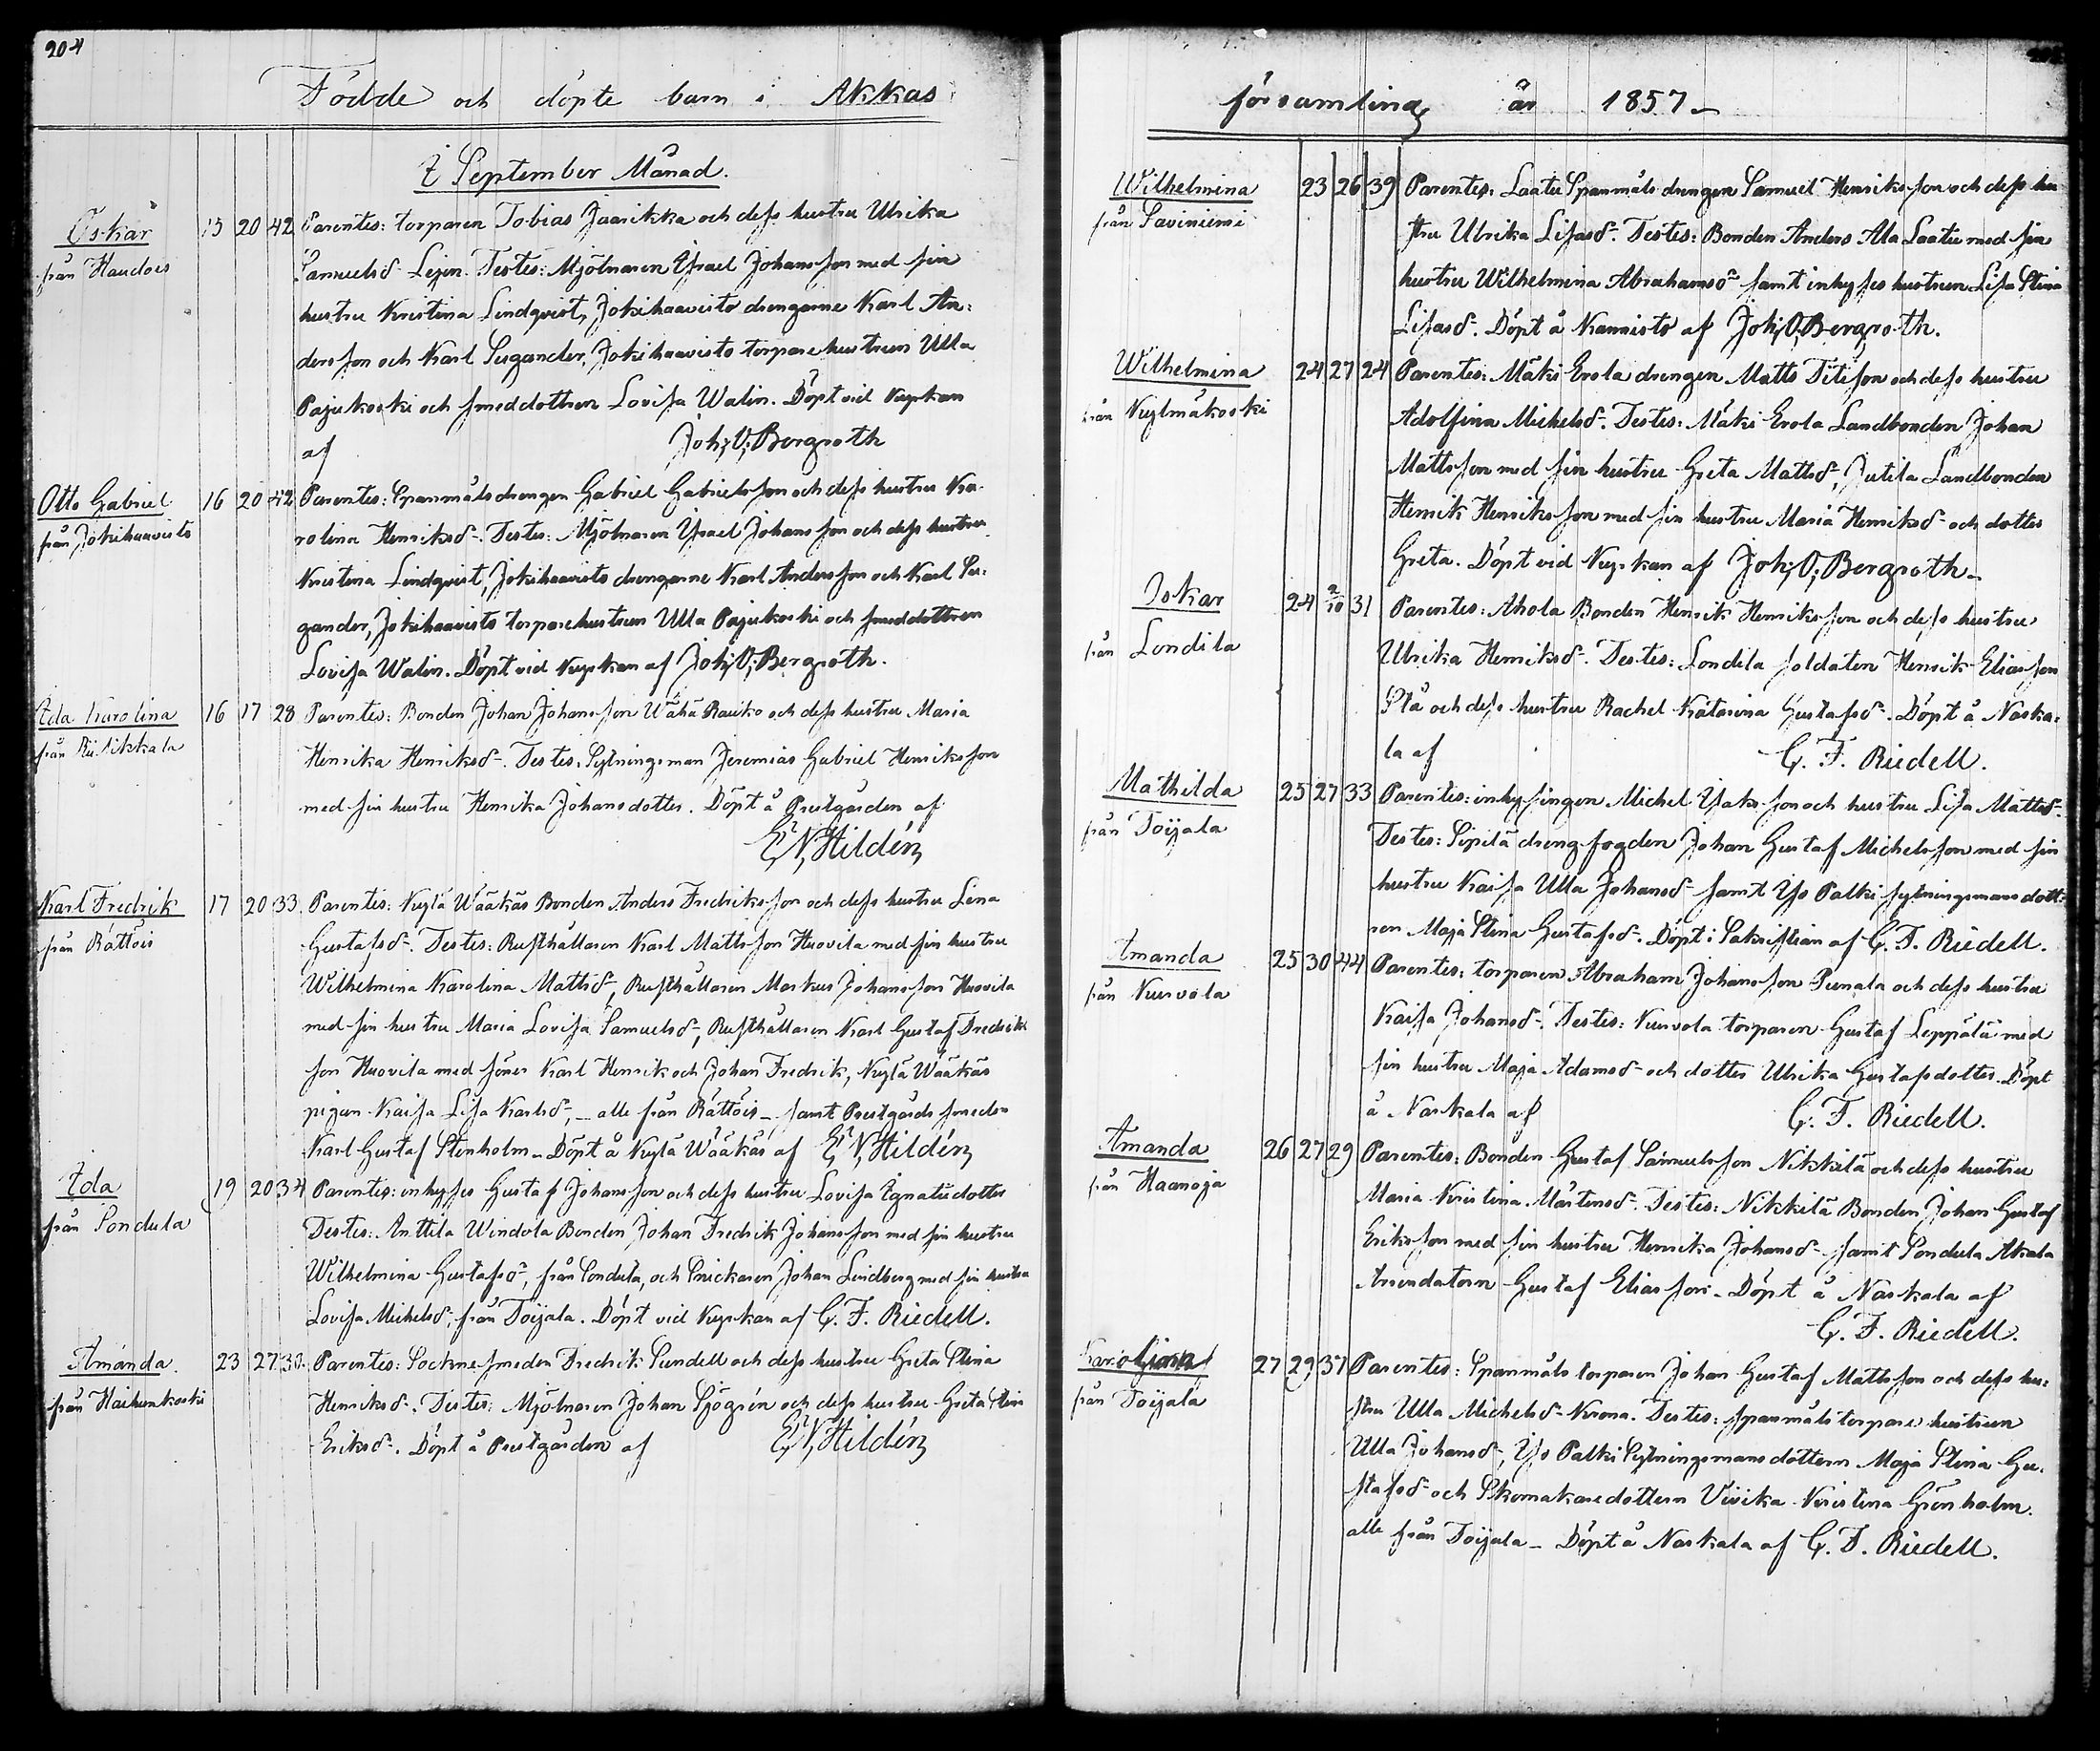 204
Födde och döpte barn i Akkas
I September Månad.
Oskar 15 20 42 Parentes: torparen Tobias Jaarikka och dess hustru Ulrika
från Haudois Samuelsd. Lejon. Testes: Mjölnaren Israel Johansson med sin
hustru Kristina Lindqvist, Jokihaavisto drengarne Karl An-
dersson och Karl Sugander, Jokihaavisto torparehustrun Ulla
Pajukoski och smeddottren Lovisa Walin. Döpt vid Kyrkan
af Joh; O; Bergroth
Otto Gabriel 16 20 42 Parentes: Spanmåls drengen Gabriel Gabrielsson och dess hustru Ka-
från Jokihaavisto rolina Henriksd. Testes: Mjölnaren Israel Johansson och dess hustru
Kristina Lindqvist, Jokihaavisto drengarne Karl Andersson och Karl Su-
gander, Jokihaavisto torparehustrun Ulla Pajukoski och smeddottren
Lovisa Walin. Döpt vid Kyrkan af Joh; O; Bergroth.
Ida Karolina 16 17 28 Parentes: Bonden Johan Johansson Wähä Rauko och dess hustru Maria
från Riisikkala Henrika Henriksd. Testes: Sytningsman Jeremias Gabriel Henriksson
med sin hustru Henrika Johansdotter. Döpt å Prestgården af
E; N; Hildén
Karl Fredrik 17 20 33. Parentes: Kylä Wääkäs Bonden Anders Fredriksson och dess hustru Lena
från Rättöis Gustafsd. Testes: Rusthållaren Karl Mattsson Huovila med sin hustru
Wilhelmina Karolina Mattsd, Rusthållaren Markus Johansson Huovila
med sin hustru Maria Lovisa Samuelsd, Rusthållaren Karl Gustaf Fredriks
son Huovila med söner Karl Henrik och Johan Fredrik, Kylä Wääkäs
pigan Kaisa Lisa Karlsd, - alle från Rättöis - samt Prestgårds smeden
Karl Gustaf Stenholm - Döpt å Kylä Wääkäs af E; N; Hildén
Ida 19 20 34 Parentes: inhyses Gustaf Johansson och dess hustru Lovisa Ignatiidotter
från Sondula Testes: Anttila Windola Bonden Johan Fredrik Johansson med sin hustru
Wilhelmina Gustafsd, från Sondula, och Snickaren Johan Lindberg med sin hustru
Lovisa Michelsd, från Toijala. Döpt vid Kyrkan af C. F. Riedell.
Amanda 23 27 30. Parentes: Sockne smeden Fredrik Sundell och dess hustru Greta Stina
från Haihunkoski Henriksd. Testes: Mjölnaren Johan Sjögrén och dess hustru Greta Stina
Eriksd. Döpt å Prestgården af E; N; Hildén
församling år 1857 -
Wilhelmina 23 26 39 Parentes: Laatu Spanmåls drengen Samuel Henriksson och dess hu-
från Saviniemi stru Ulrika Lisasd. Testes: Bonden Anders Ala Laatu med sin
hustru Wilhelmina Abrahamsd samt inhyses hustrun Lisa Stina
Lisasd. Döpt å Kannisto af Joh; O; Bergroth.
Wilhelmina 24 27 24 Parentes: Mäki Erola drengen Matts Titisson och dess hustru
från Kylmäkoski Adolfina Michelsd. Testes: Mäki Erola Landbonden Johan
Mattsson med sin hustru Greta Mattsd, Jutila Landbonden
Henrik Henriksson med sin hustru Maria Henriksd och dotter
Greta. Döpt vid Kyrkan af Joh; O; Bergroth -
Oskar 24 2/10 31 Parentes: Ahola Bonden Henrik Henriksson och dess hustru
från Sondila Ulrika Henriksd. Testes: Sondila soldaten Henrik Eliasson
Stå och dess hustru Rachel Katarina Gustafsd. Döpt å Naska-
la af C. F. Riedell.
Mathilda 25 27 33 Parentes: inhysingen Michel Isaksson och hustru Lisa Mattsd.
från Toijala Testes: Sipilä drengfogden Johan Gustaf Michelsson med sin
hustru Kaisa Ulla Johansd samt Iso Palki sytningsmansdott-
ren Maja Stina Gustafsd. Döpt i Sakristian af C. F. Riedell.
Amanda 25 30 44 Parentes: torparen Abraham Johansson Punala och dess hustru
från Kurvola Kaisa Johansd. Testes: Kurvola torparen Gustaf Leppälä med
sin hustru Maja Adamsd och dotter Ulrika Gustafsdotter. Döpt
å Naskala af C. F. Riedell.
Amanda 26 27 29 Parentes: Bonden Gustaf Samuelsson Nikkilä och dess hustru
från Haanoja Maria Kristina Mårtensd. Testes: Nikkilä Bonden Johan Gustaf
Eriksson med sin hustru Henrika Johansd samt Sondula Akala
Arrendatorn Gustaf Eliasson - Döpt å Naskala af
C. F. Riedell.
Karolina 27 29 37 Parentes: Spanmåls torparen Johan Gustaf Mattsson och dess hu-
från Toijala stru Ulla Michelsd Krona. Testes: spanmåls torpare hustrun
Ulla Johansd, Iso Palki Sytningsmansdottern Maja Stina Gu-
stafsd och Skomakaredottern Vivika Kristina Grönholm.
alle från Toijala - Döpt å Naskala af C. F. Riedell.